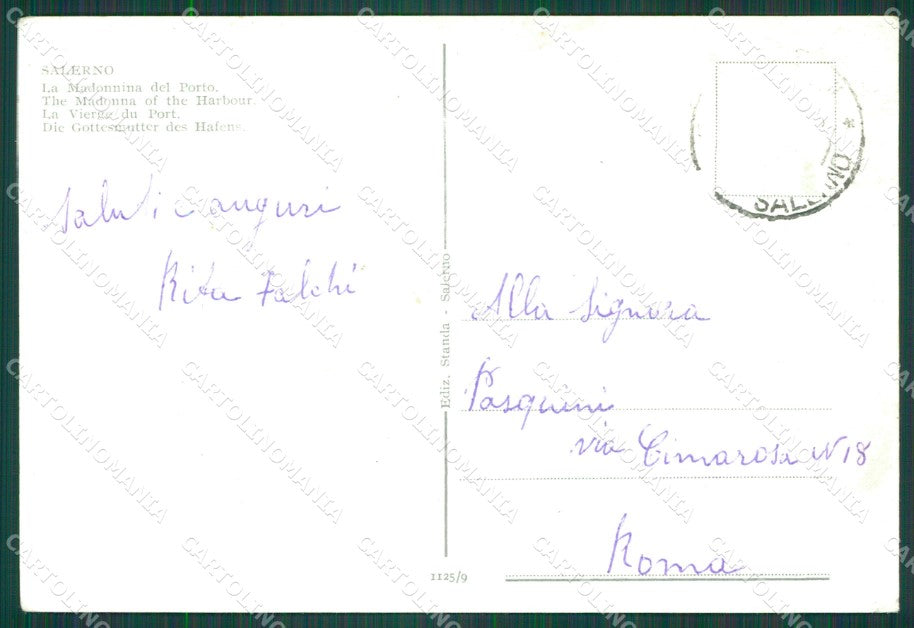 SALERNO
La Madonnina del Porto.
The Madonna of the Harbour.
La Vierge du Port.
Die Gottesmutter des Hafens.
Saluti e auguri
Rita Falchi
Ediz. Standa - Salerno
1125/9
SALERNO *
Alla Signora
Pasquini
via Cimarosa N 18
Roma
CARTOLINOMANIA